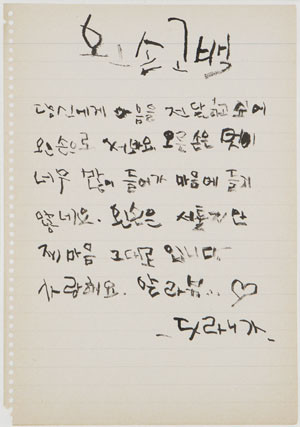 왼손고백
당신에게 마음을 전달하고 싶어
왼손으로 써봐요 오른손은 멋이
너무 많이 들어가 마음에 들지
않네요. 왼손은 서툴지만
제 마음 그대로 입니다
사랑해요. 알라뷰... ♡
- 다라니가 -